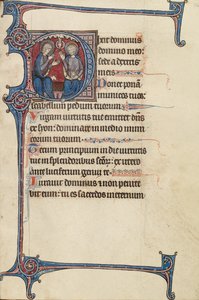 Dixit dominus
domino meo:
sede a dextris
meis
Donec ponā
inimicos tuos
scabellum pedum tuorum
Virgam uirtutis tue emittet dn̄s
ex syon: dominare in medio inimi
corum tuorum
Tecum principium in die uirtutis
tue in splendoribus sc̄orū: ex utero
ante luciferum genui te
Iurauit dominus et non penite
bit eum: tu es sacerdos in eternum